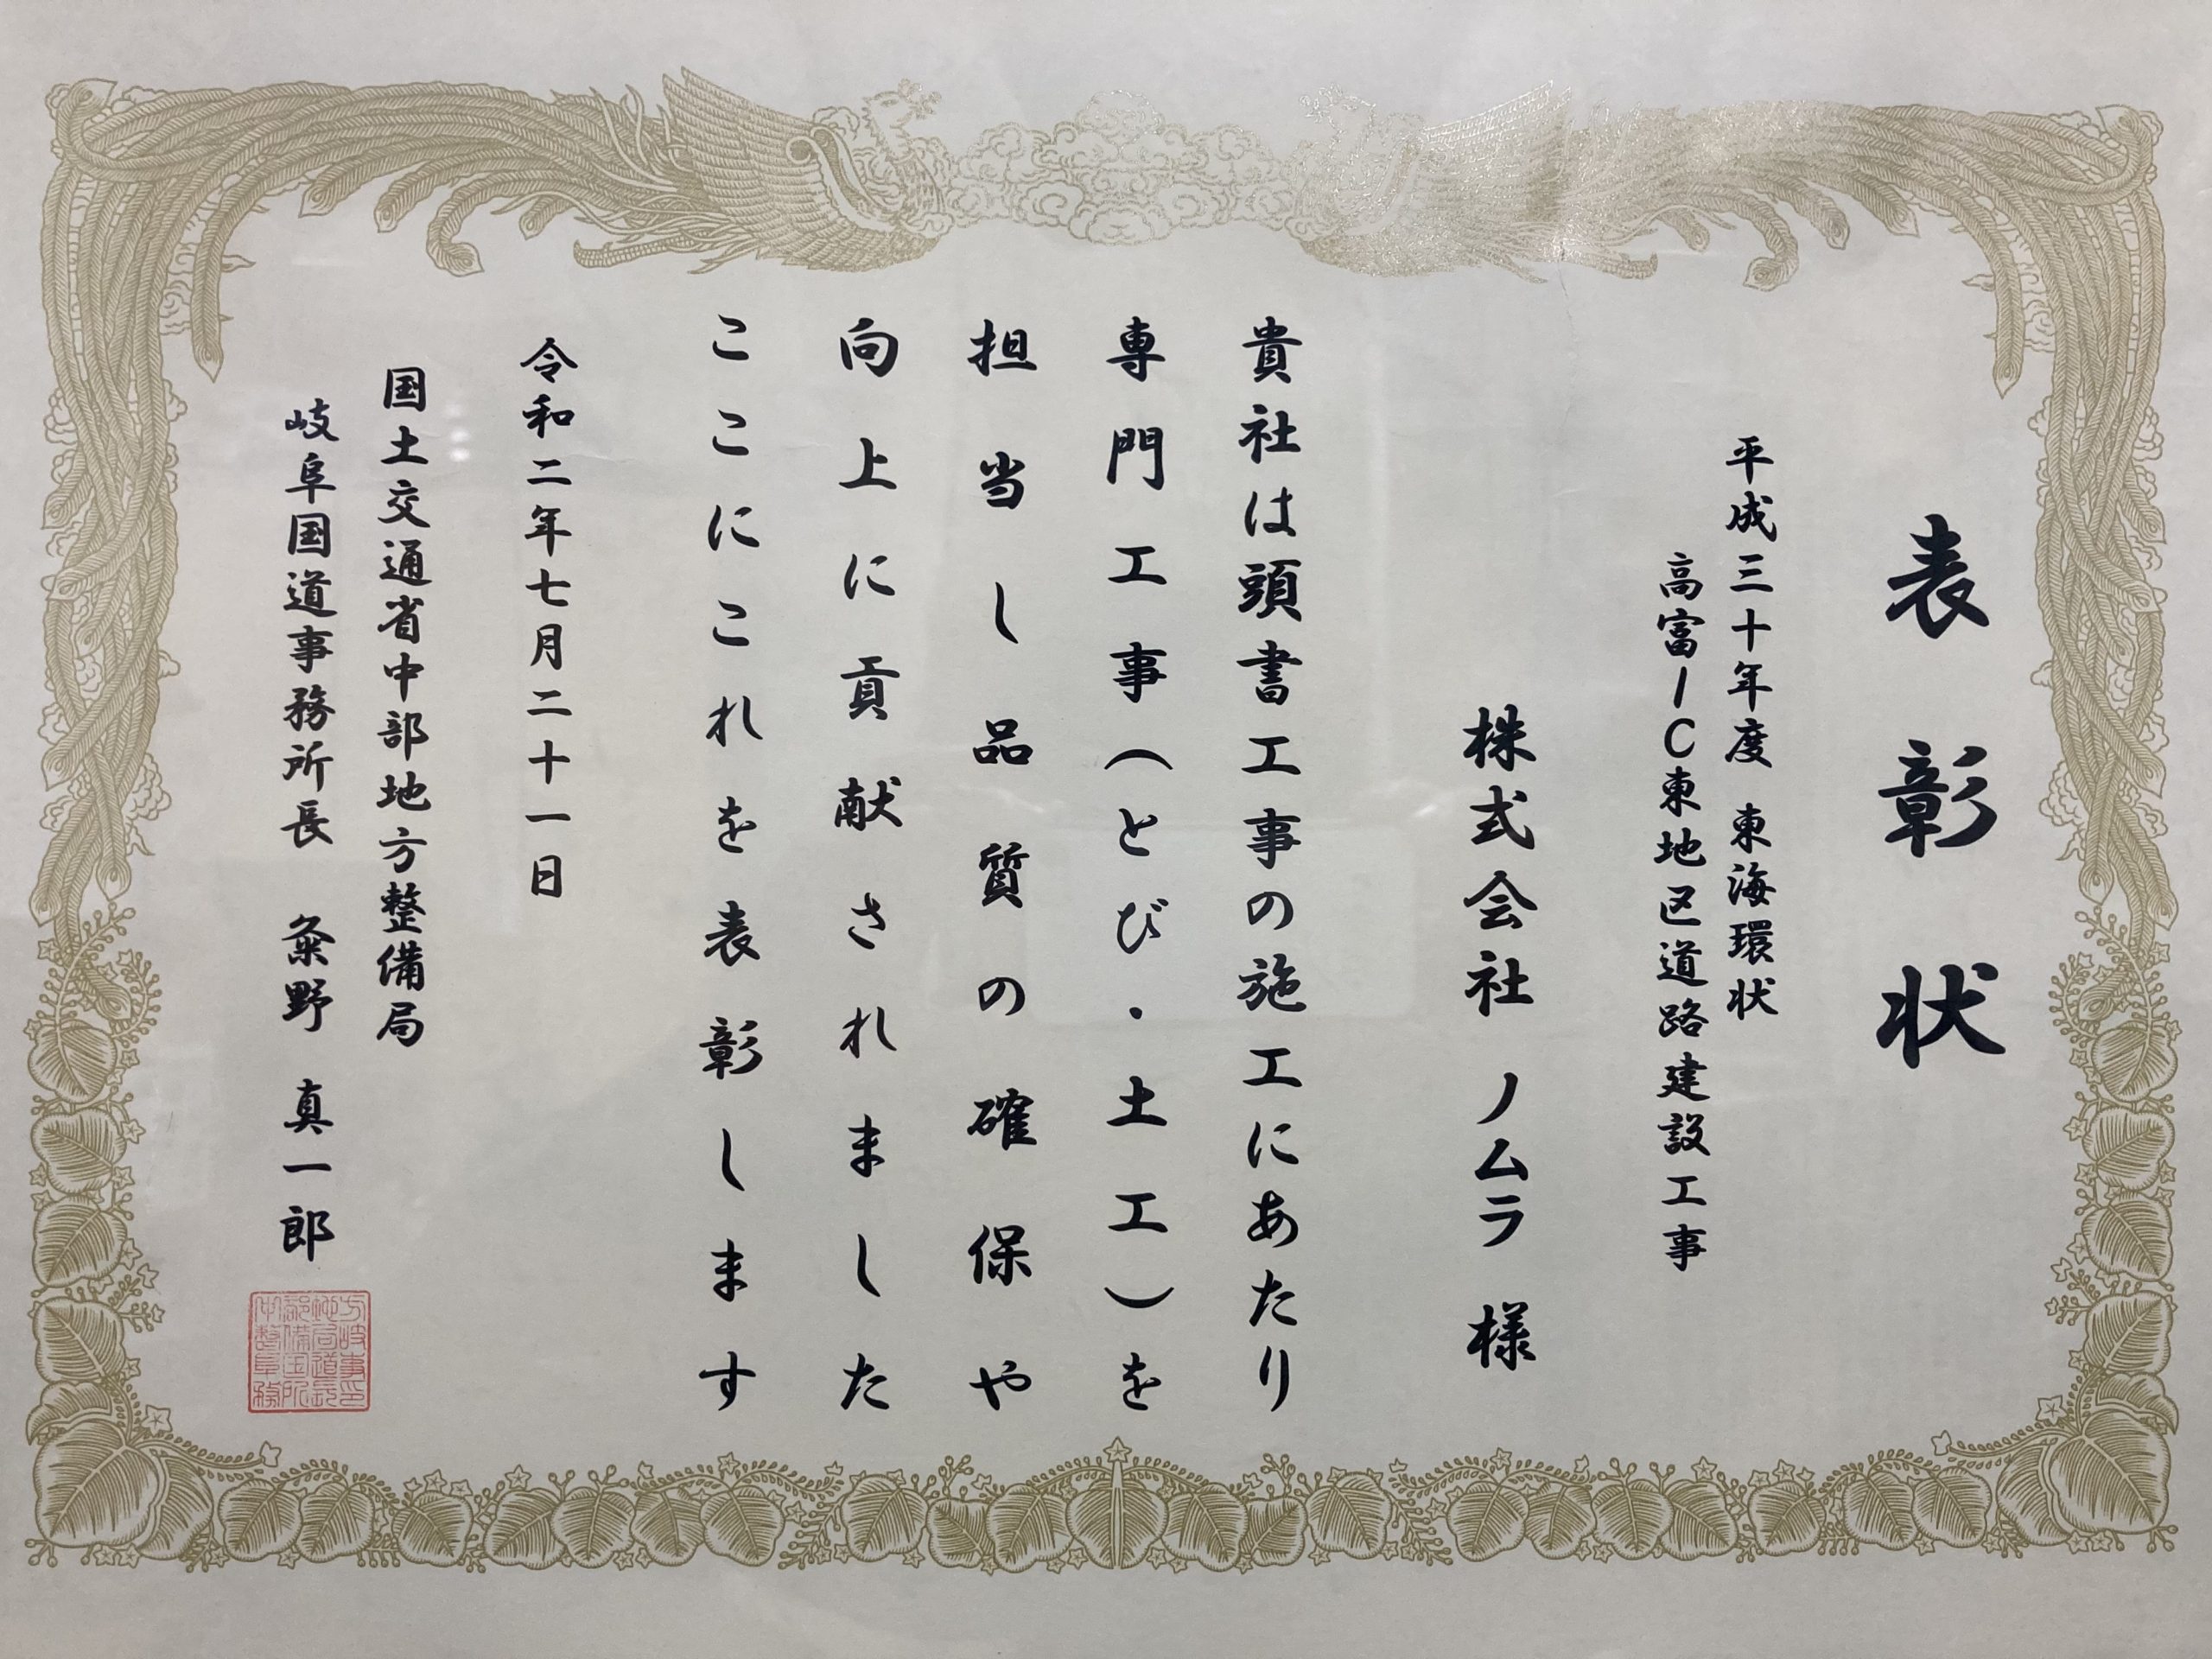 表彰状
平成三十年度 東海環状
高富IC東地区道路建設工事
株式会社 ノムラ 様
貴社は頭書工事の施工にあたり
専門工事(とび・土工)を
担当し品質の確保や
向上に貢献されました
ここにこれを表彰します
令和二年七月二十一日
国土交通省中部地方整備局
岐阜国道事務所長 粂野 真一郎